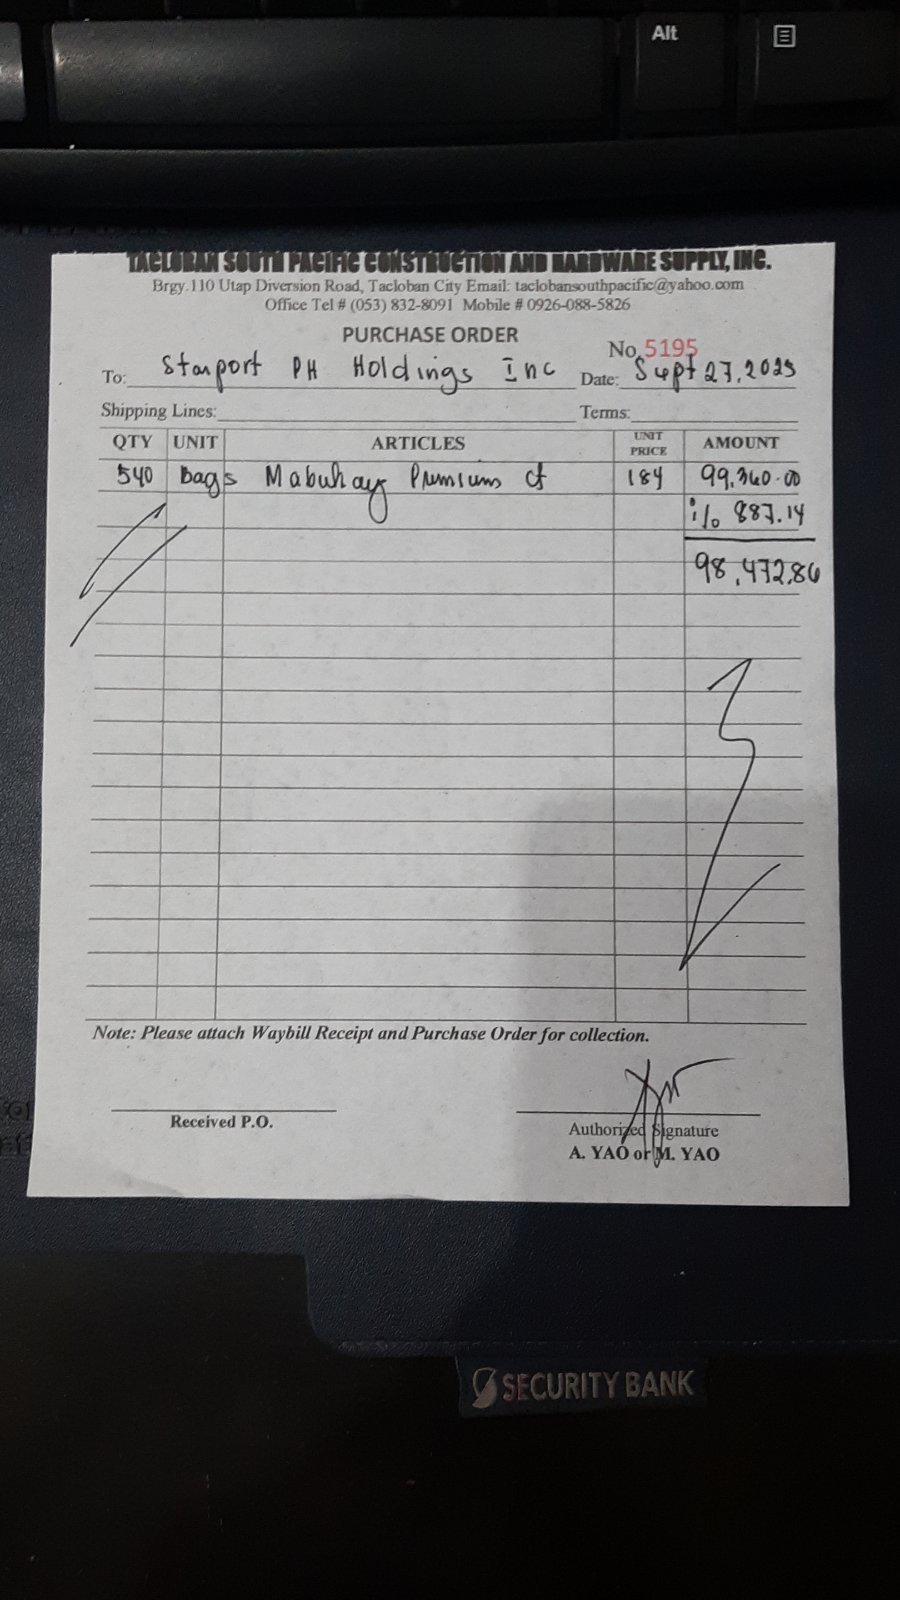 Alt
TACLOBAN SOUTH PACIFIC CONSTRUCTION AND HARDWARE SUPPLY, INC.
Brgy.110 Utap Diversion Road, Tacloban City Email: taclobansouthpacific@yahoo.com
Office Tel # (053) 832-8091 Mobile # 0926-088-5826
PURCHASE ORDER
No. 5195
To: Starport PH Holdings Inc Date: Sept 27, 2023
Shipping Lines: Terms:
QTY UNIT ARTICLES UNIT PRICE AMOUNT
540 Bags Mabuhay Premium ct 184 99,360.00
1% 887.14
98,472.86
Note: Please attach Waybill Receipt and Purchase Order for collection.
Received P.O.
Authorized Signature
A. YAO or M. YAO
SECURITY BANK